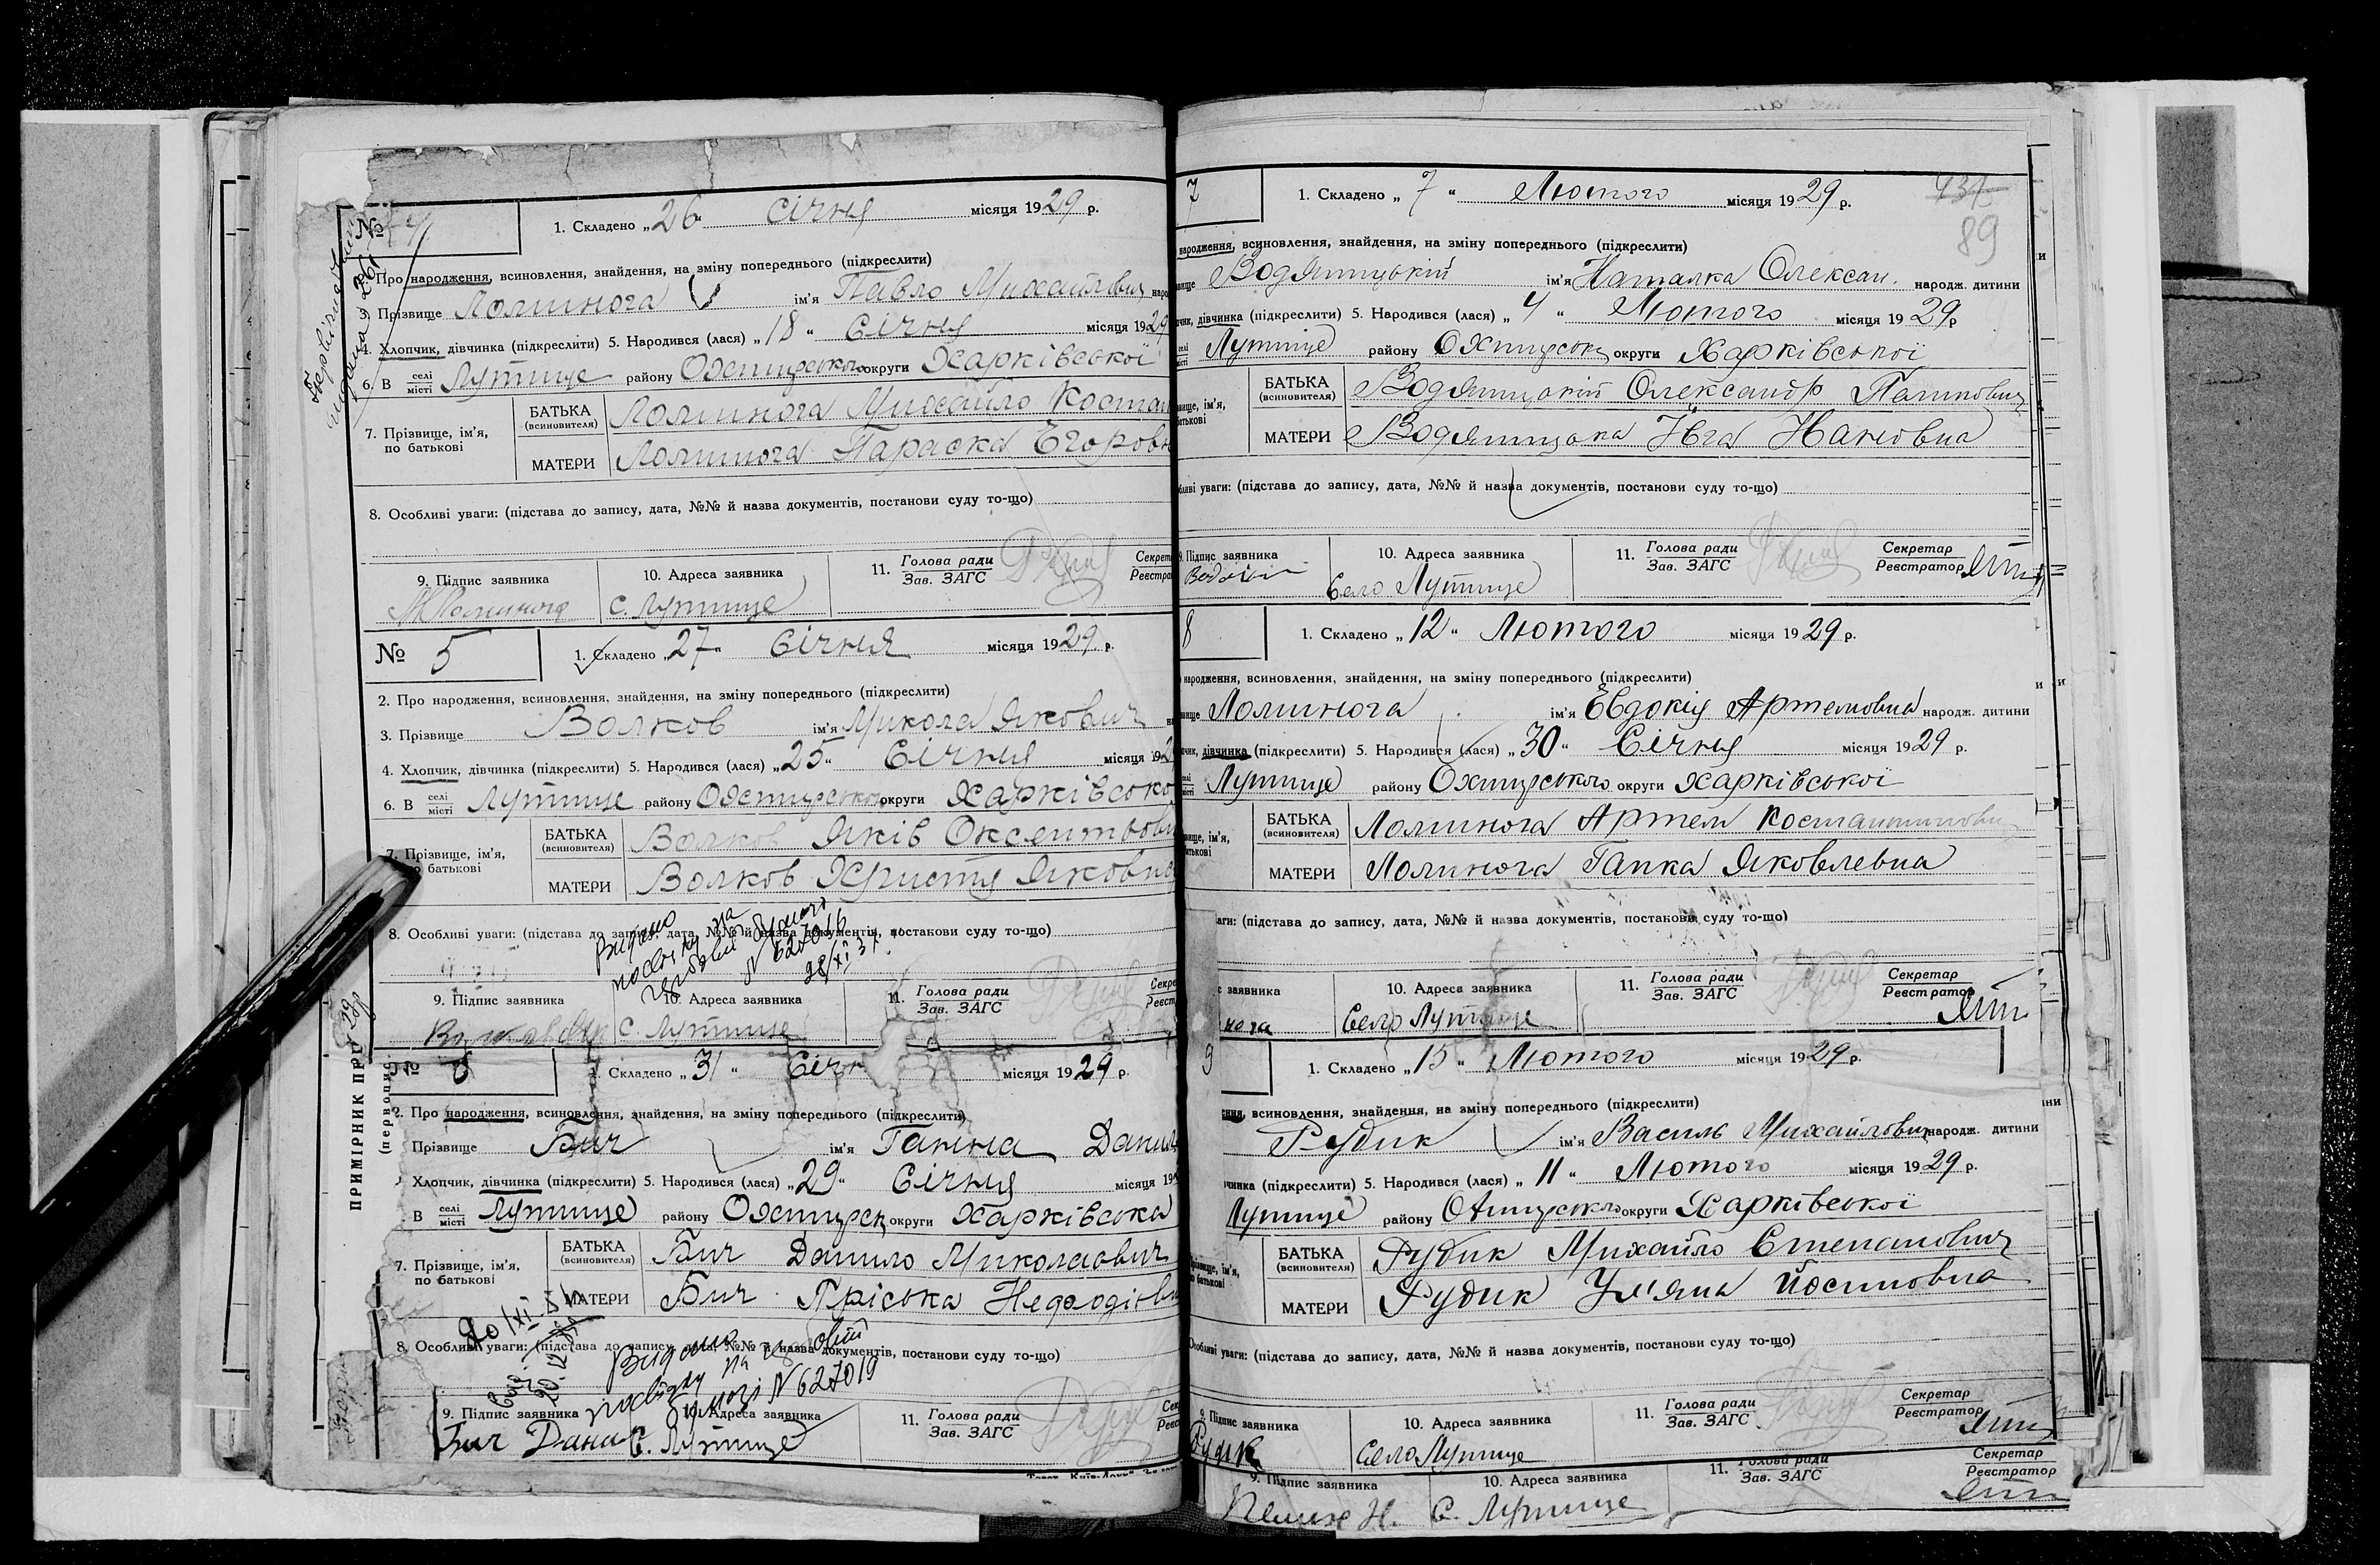 № 4
1. Складено „26“ Січня місяця 1929 р.
2. Про народження, всиновлення, знайдення, на зміну попереднього (підкреслити)
3. Прізвище Ломинога ім'я Павло Михайлович
4. Хлопчик, дівчинка (підкреслити) 5. Народився (лася) „18“ Січня місяця 1929
6. В селі місті Лутище району Охтирського округи Харківської
7. Прізвище, ім'я, по батькові
БАТЬКА (всиновителя) Ломинога Михайло Костан
МАТЕРИ Ломинога Параска Егоровн
8. Особливі уваги: (підстава до запису, дата, №№ й назва документів, постанови суду то-що)
9. Підпис заявника 10. Адреса заявника 11. Голова ради Зав. ЗАГС
Ломинога с. Лутище
№ 5
1. Складено „27“ Січня місяця 1929 р.
2. Про народження, всиновлення, знайдення, на зміну попереднього (підкреслити)
3. Прізвище Волков ім'я Микола Якович
4. Хлопчик, дівчинка (підкреслити) 5. Народився (лася) „25“ Січня місяця 192
6. В селі місті Лутище району Охтирського округи Харківсько
7. Прізвище, ім'я, по батькові
БАТЬКА (всиновителя) Волков Яків Оксентьови
МАТЕРИ Волков Христя Яковна
8. Особливі уваги: (підстава до запису, дата, №№ й назва документів, постанови суду то-що)
Видано на
N 627016
28/XI 37
9. Підпис заявника 10. Адреса заявника 11. Голова ради Зав. ЗАГС
с. Лутище
ПРИМІРНИК ПЕР
(первопис
№ 6
1. Складено „31“ Січн місяця 1929 р.
2. Про народження, всиновлення, знайдення, на зміну попереднього (підкреслити)
Прізвище Бич ім'я Ганна Данил
Хлопчик, дівчинка (підкреслити) 5. Народився (лася) „29“ Січня місяця 19
В селі місті Лутище району Охтирськ округи Харківська
7. Прізвище, ім'я, по батькові
БАТЬКА (всиновителя) Бич Данило Миколаович
МАТЕРИ Бич Пріська
8. Особливі уваги: (підстава до запису, дата, №№ й назва документів, постанови суду то-що)
Видано
N 627019
9. Підпис заявника 10. Адреса заявника 11. Голова ради Зав. ЗАГС
Бич Дани С. Лутище
7
1. Складено „7“ Лютого місяця 1929 р.
437
89
народження, всиновлення, знайдення, на зміну попереднього (підкреслити)
Водяницький ім'я Наталка Олексан. народж. дитини
дівчинка (підкреслити) 5. Народився (лася) „4“ Лютого місяця 1929 р
Лутище району Охтирськ округи Харківської
БАТЬКА (всиновителя) Водяницький Олександр
МАТЕРИ Водяницька Ївга
уваги: (підстава до запису, дата, №№ й назва документів, постанови суду то-що)
9. Підпис заявника 10. Адреса заявника 11. Голова ради Зав. ЗАГС Секретар Реєстратор
Село Лутище
8
1. Складено „12“ Лютого місяця 1929 р.
народження, всиновлення, знайдення, на зміну попереднього (підкреслити)
Ломинога ім'я Євдокія Артемовна народж. дитини
дівчинка (підкреслити) 5. Народився (лася) „30“ Січня місяця 1929 р.
Лутище району Охтирського округи Харківської
БАТЬКА (всиновителя) Ломинога Артем Костантинови
МАТЕРИ Ломинога Гапка Яковлевна
(підстава до запису, дата, №№ й назва документів, постанови суду то-що)
заявника 10. Адреса заявника 11. Голова ради Зав. ЗАГС Секретар Реєстратор
нога Село Лутище
9
1. Складено „15“ Лютого місяця 1929 р.
всиновлення, знайдення, на зміну попереднього (підкреслити)
Рудик ім'я Василь Михайлович народж. дитини
(підкреслити) 5. Народився (лася) „11“ Лютого місяця 1929 р.
Лутище району Охтирського округи Харківської
БАТЬКА (всиновителя) Рудик Михайло Степанович
МАТЕРИ Рудик Уляна Йосиповна
Особливі уваги: (підстава до запису, дата, №№ й назва документів, постанови суду то-що)
9. Підпис заявника 10. Адреса заявника 11. Голова ради Зав. ЗАГС Секретар Реєстратор
Рудик Село Лутище
9. Підпис заявника 10. Адреса заявника 11. Голова ради Зав. ЗАГС Секретар Реєстратор
С. Лутище